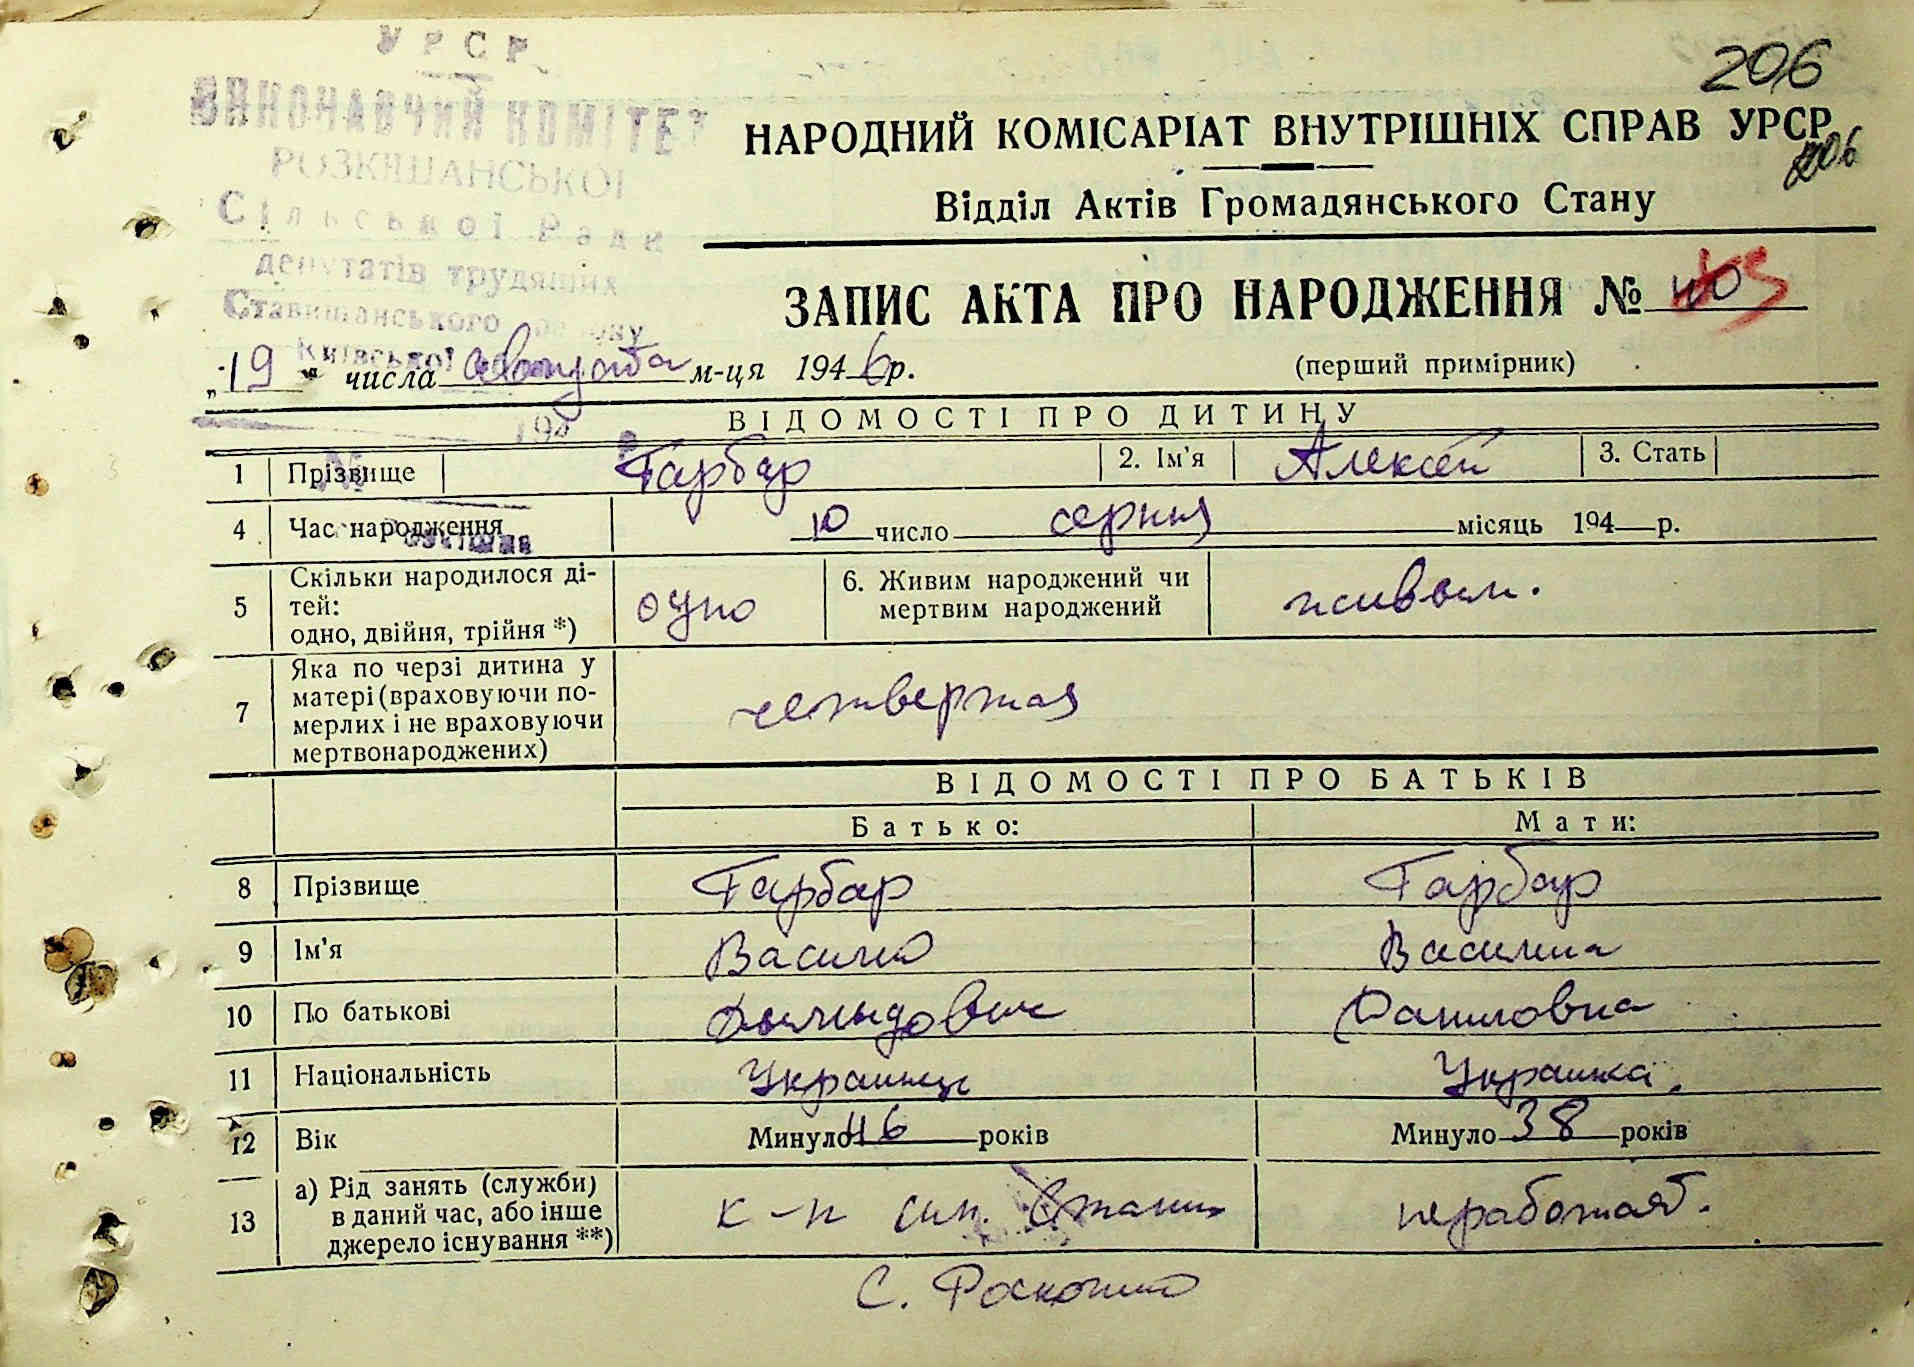 УРСР
ВИКОНАВЧИЙ КОМІТЕТ
РОЗКІШАНСЬКОЇ
Сільської Ради
депутатів трудящих
Ставищанського району
Київської
194
№
206
206
НАРОДНИЙ КОМІСАРІАТ ВНУТРІШНІХ СПРАВ УРСР
Відділ Актів Громадянського Стану
ЗАПИС АКТА ПРО НАРОДЖЕННЯ №
(перший примірник)
„19“ числа августа м-ця 1946р.
ВІДОМОСТІ ПРО ДИТИНУ
1 Прізвище Гарбар 2. Ім'я Алексей 3. Стать
4 Час народження 10 число серпня місяць 194 р.
5 Скільки народилося ді-
тей:
одно, двійня, трійня *) одно 6. Живим народжений чи
мертвим народжений живым.
7 Яка по черзі дитина у
матері (враховуючи по-
мерлих і не враховуючи
мертвонароджених) четвертая
ВІДОМОСТІ ПРО БАТЬКІВ
Батько: Мати:
8 Прізвище Гарбар Гарбар
9 Ім'я Василь Василина
10 По батькові Даниловна
11 Національність Украинец Украинка.
12 Вік Минуло 46 років Минуло 38 років
13 а) Рід занять (служби)
в даний час, або інше
джерело існування **) к-п неработает.
С.